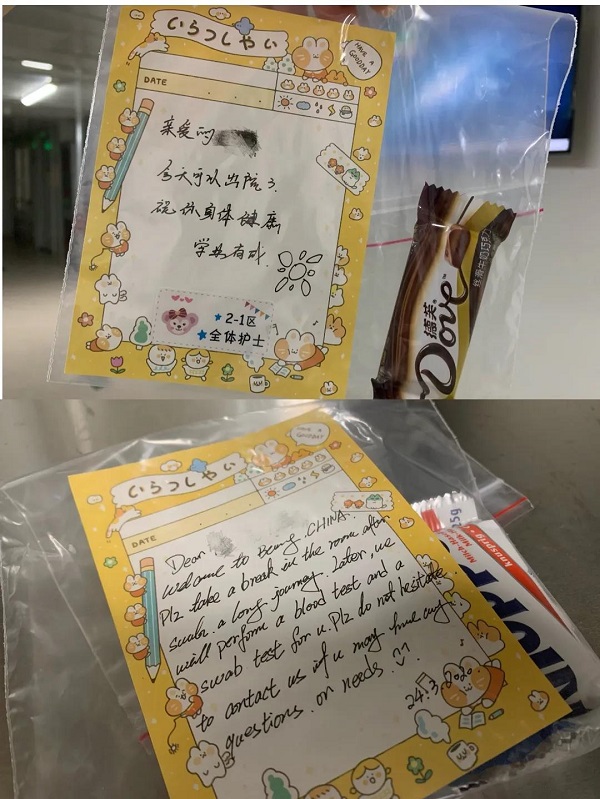 いらっしゃい
HAVE A GOODDAY
DATE
亲爱的
今天可以出院了.
祝你身体健康
学业有成
2-1区
全体护士
德芙
Dove
丝滑牛奶巧克
いらっしゃい
HAVE A GOODDAY
DATE
Dear
Welcome to Beijing, CHINA.
Plz take a break in the room after
such a long journey. Later, we
will perform a blood test and a
swab test for u. Plz do not hesitate
to contact us if u may have any
questions or needs.
24.3.2020
knusprig
Milch